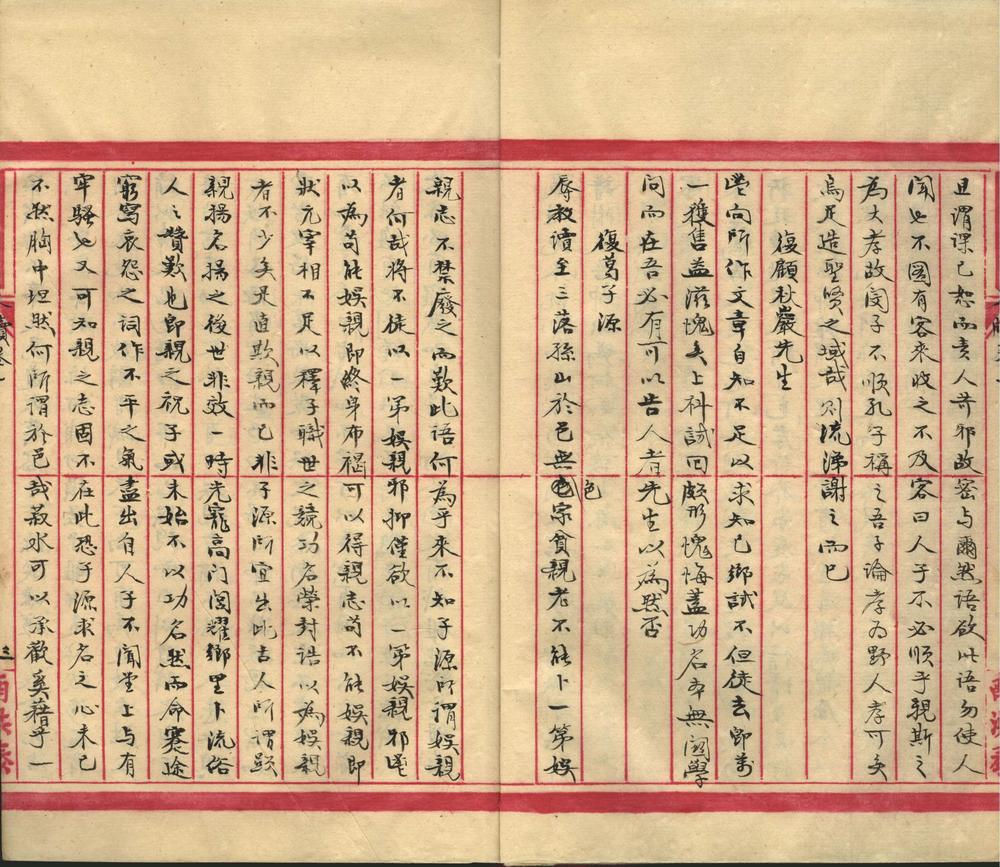 且谓深已恕而责人苛邪故密与爾然语欲此语勿使人
闻也不图有客来收之不及客曰人子不必顺乎親斯之
为大孝故闵子不顺孔子稱之吾子論孝为野人孝可矣
烏足造聖贤之域哉则流涕謝之而已
復顧秋巖先生
從向所作文章自知不足以求知已鄉試不但徒去即劣
一獲售益滋愧矣上科試回頗形愧悔盖功名本無関學
问而在吾必有可以告人者先生以為然否
復葛子源
辱教读至三落孫山於邑無色宗貧親老不能卜一第娱
親志不禁廢之而歎此语何為乎来不知子源所谓娱親
者何哉将不徒以一第娱親邪抑僅欲以一第娱親邪
以為苟能娱親即終身布褐可以得親志苟不能娱親即
狀元宰相不足以釋子職世之競功名榮封诰以為娱親
者不少矣是直欺親而已非子源所宜出此古人所谓顯
親揚名揚之後世非效一時光寵高门闾耀鄉里卜流俗
人之贊歎也即親之祝子或未始不以功名然而命蹇途
窮寫哀怨之词作不平之氣盡出自人子不闻堂上与有
牢骚也又可知親之志固不在此恐子源求名之心未已
不然胸中坦然何所谓於邑哉菽水可以承歡奚藉乎一